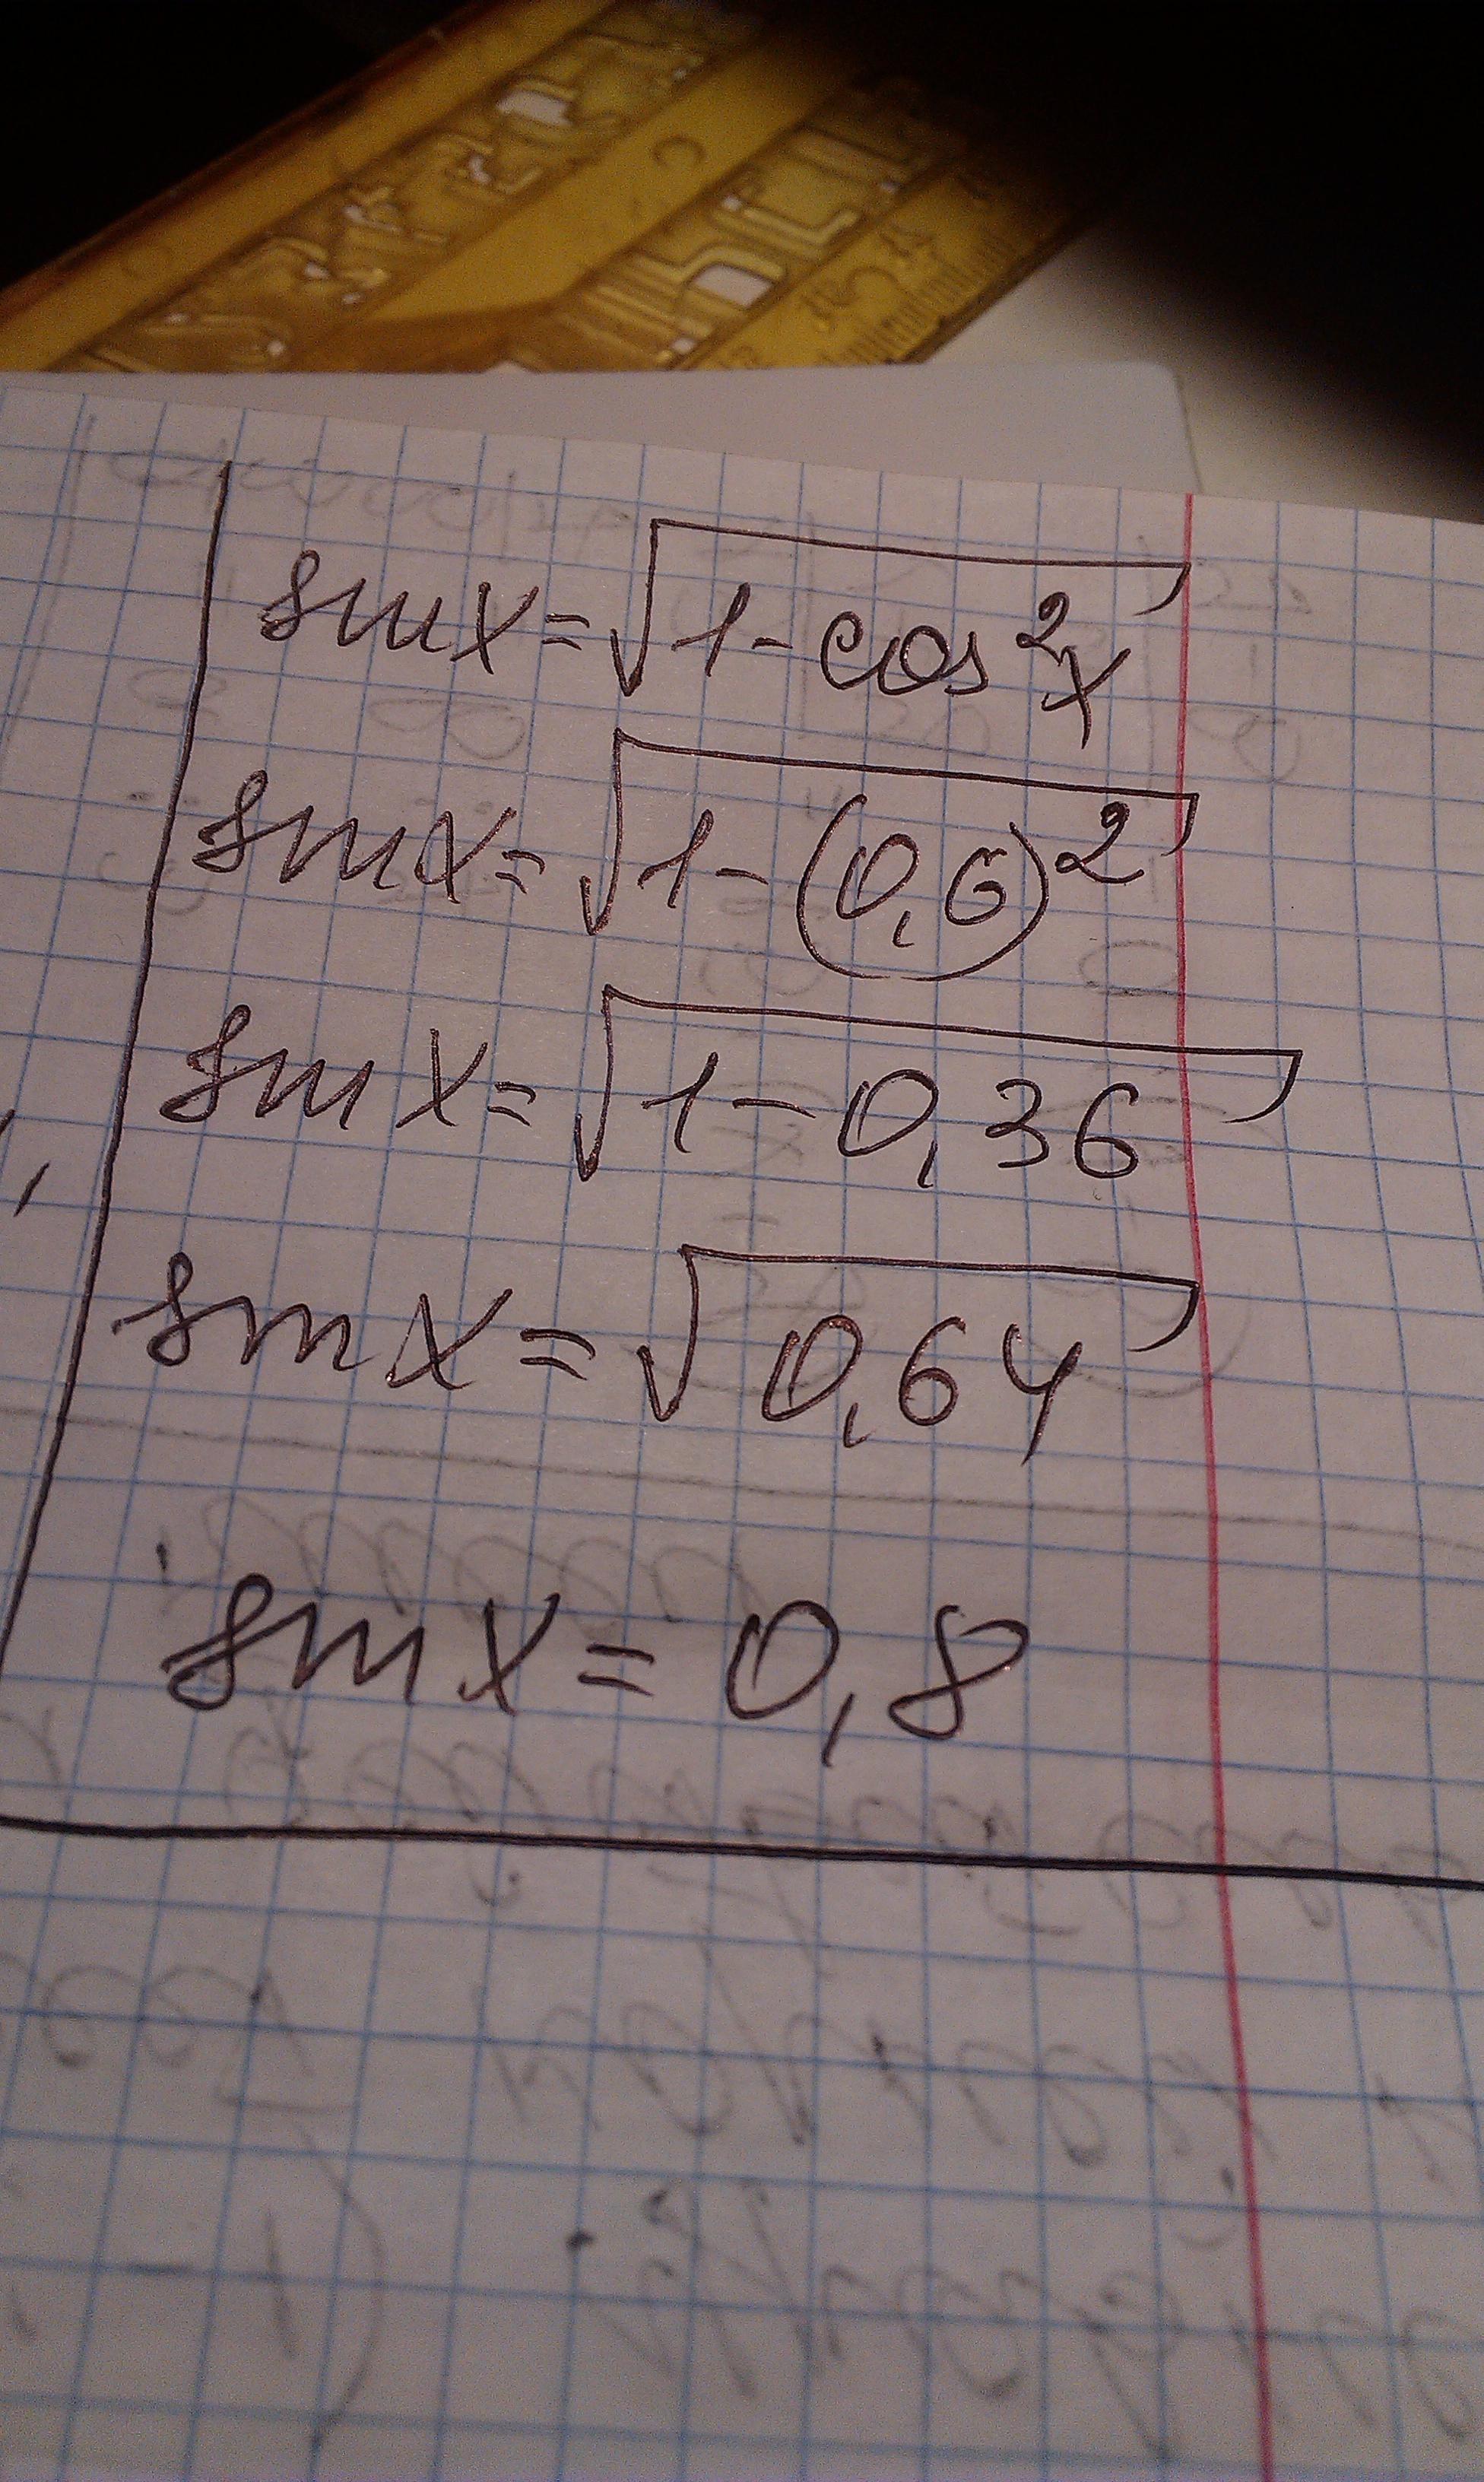 sin x = √1 - cos²x
sin x = √1 - (0,6)²
sin x = √1 - 0,36
sin x = √0,64
sin x = 0,8